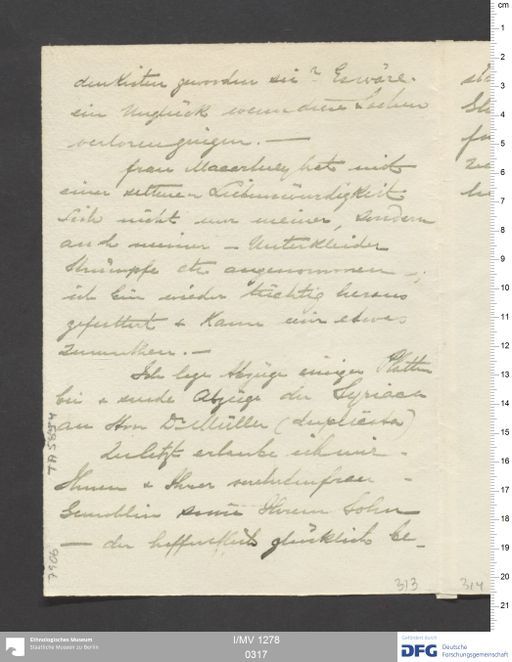 den Kisten geworden sei? Es wäre
ein Unglück wenn diese Sachen
verloren gingen. —
Frau Macartney hat mit
einer seltenen Liebenswürdigkeit
sich nicht nur meiner, sondern
auch meiner – Unterkleider
Strümpfe etc angenommen –;
ich bin wieder tüchtig heraus
gefuttert & kann mir etwas
zumuthen. —
Ich lege Abzüge einiger Platten
bei & sende Abzüge der Syriaca
an Herrn Dr Müller (duplicata)
Zuletzt erlaube ich mir
Ihnen & Ihrer verehrten Frau
Gemahlin sowie Ihrem Sohn
— der hoffentlich glücklich be-
TA 5854
7906
313
314
I/MV 1278
0317
Ethnologisches Museum
Staatliche Museen zu Berlin
Gefördert durch
DFG Deutsche
Forschungsgemeinschaft
cm
1
2
3
4
5
6
7
8
9
10
11
12
13
14
15
16
17
18
19
20
21